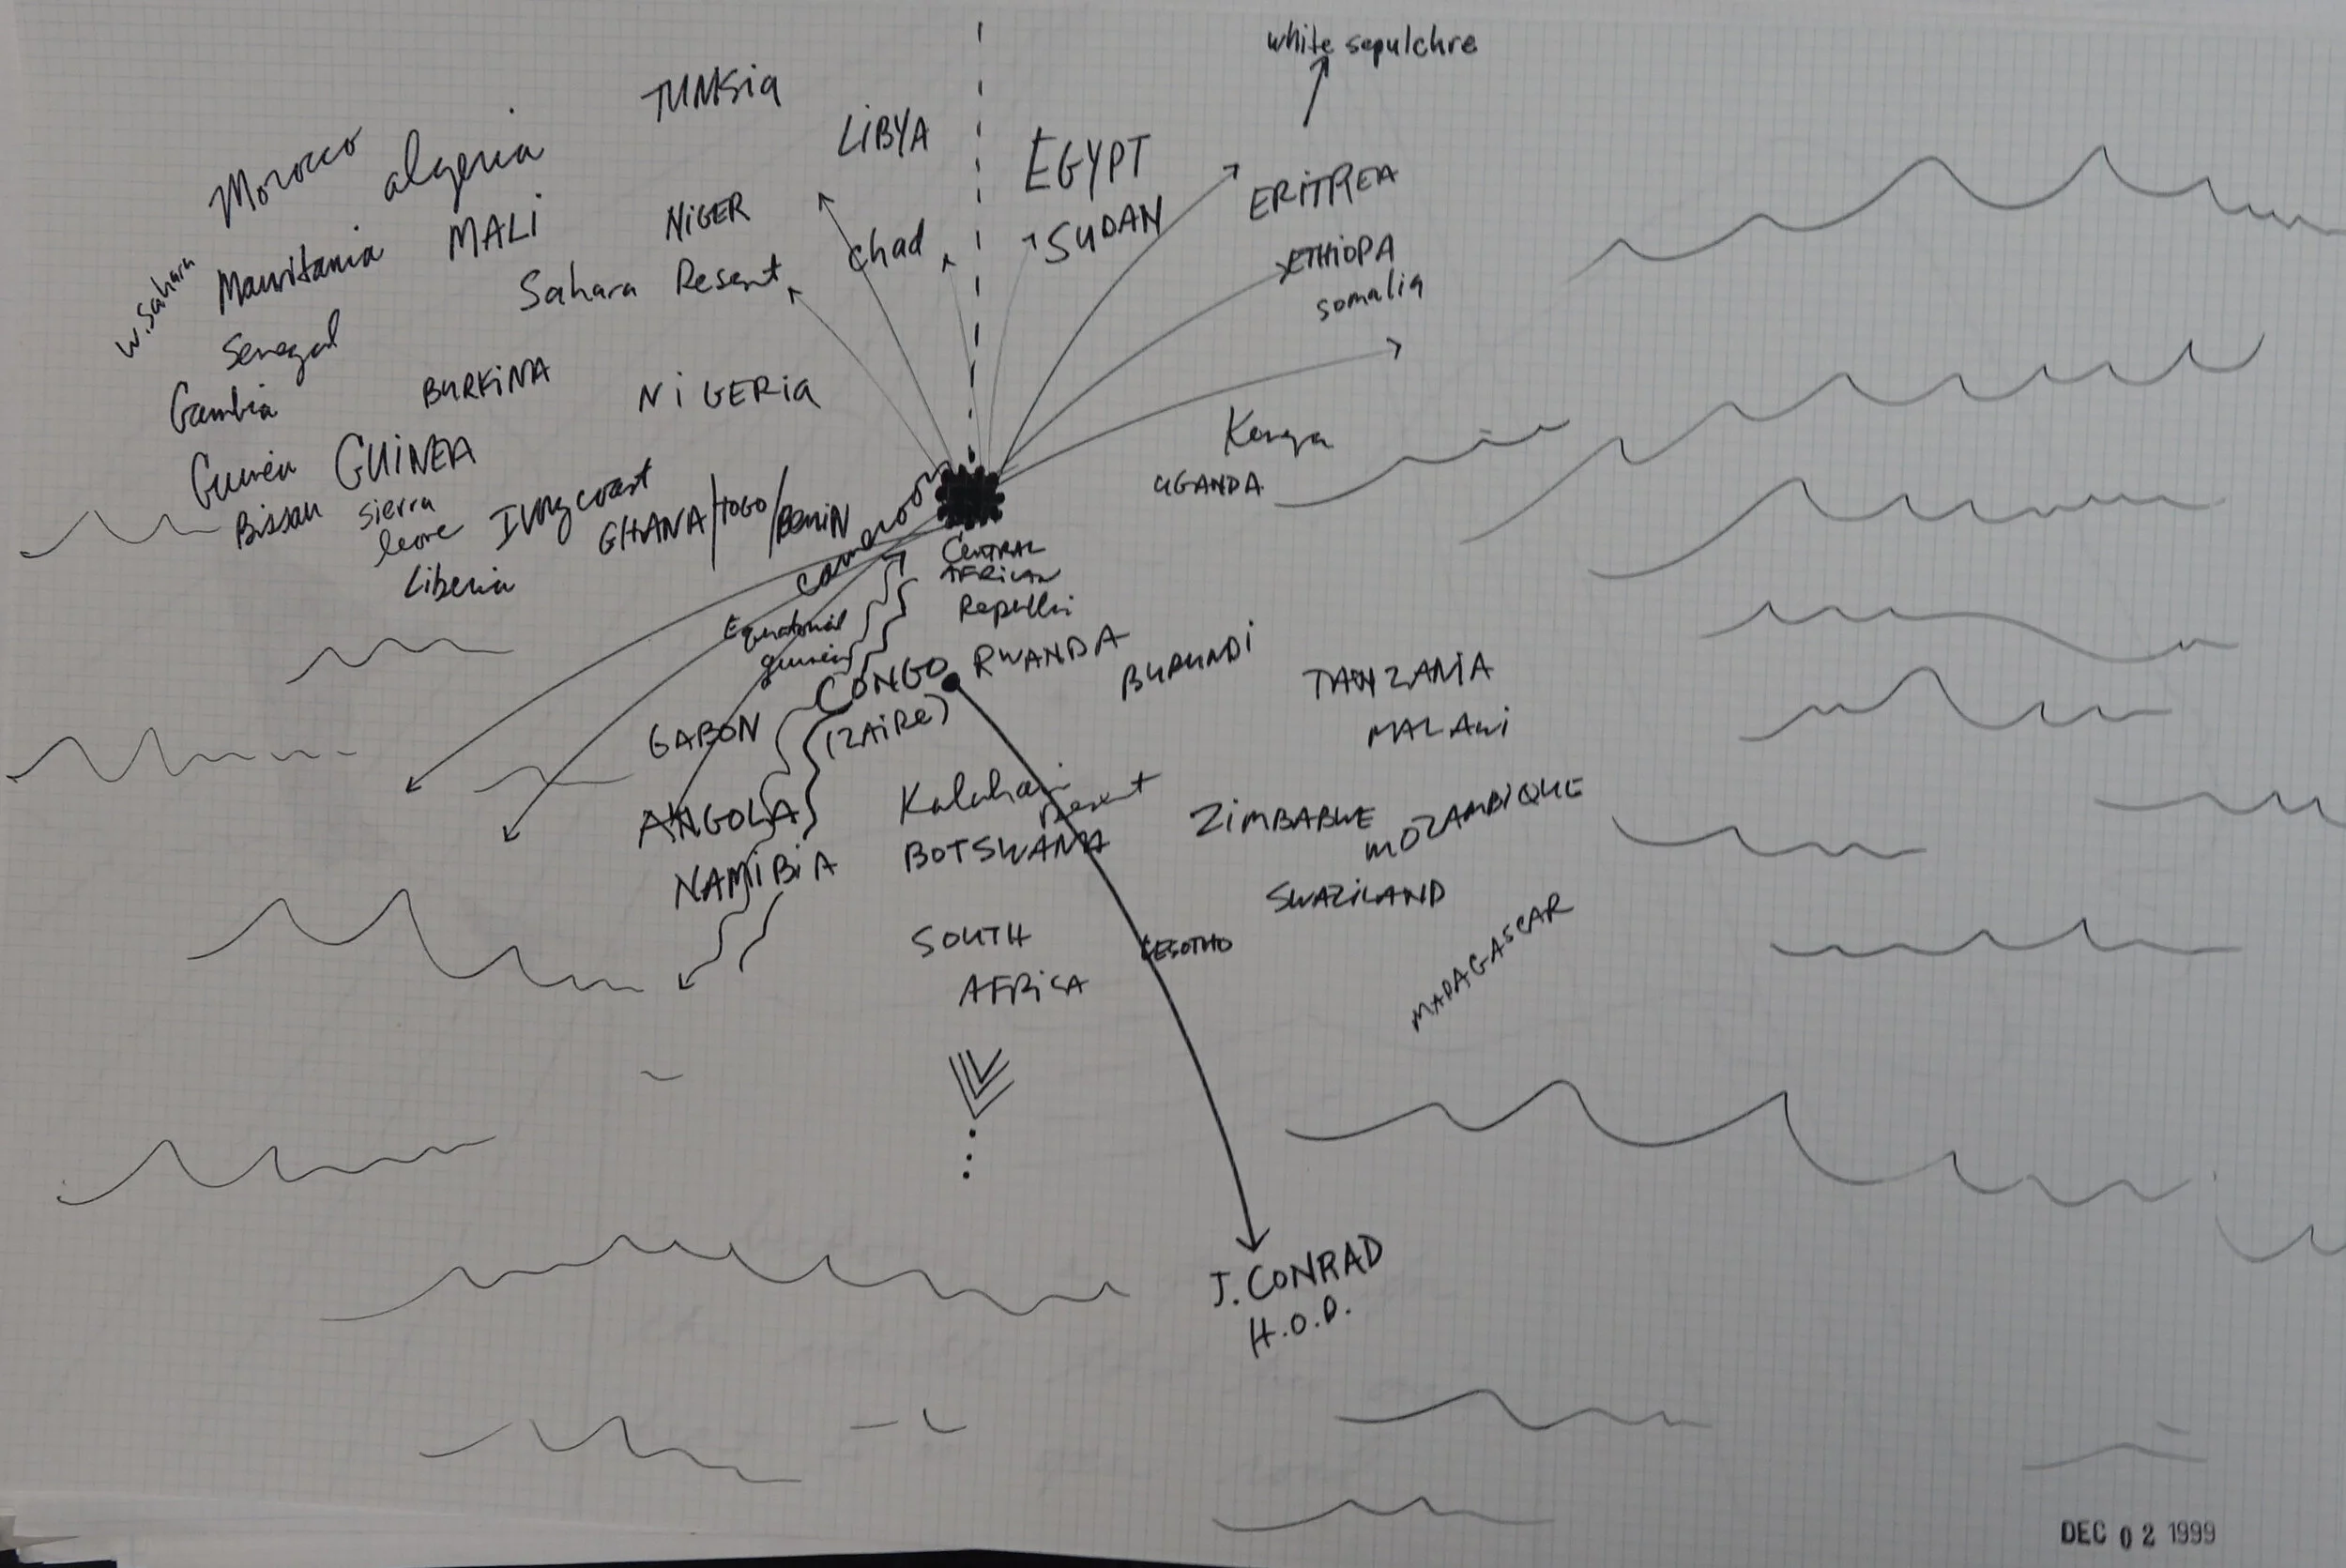 white sepulchre
TUNISIA
LIBYA
Morocco
algeria
EGYPT
ERITREA
NIGER
MALI
SUDAN
chad
W. Sahara
Mauritania
Sahara Desert
ETHIOPA
somalia
Senegal
Gambia
BURKINA
NIGERIA
Kenya
UGANDA
Guinea
Bissau
GUINEA
sierra
leone
Ivory coast
GHANA/TOGO/BENIN
Liberia
cameroon
CENTRAL
AFRICAN
Republic
Equatorial
guinea
CONGO
(ZAIRE)
RWANDA
BURUNDI
TANZANIA
MALAWI
GABON
ANGOLA
NAMIBIA
Kalahari
Desert
BOTSWANA
ZIMBABWE
MOZAMBIQUE
SWAZILAND
SOUTH
AFRICA
LESOTHO
MADAGASCAR
J. CONRAD
H.O.D.
DEC 02 1999